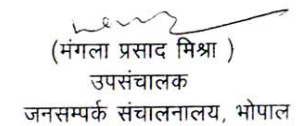 (मंगला प्रसाद मिश्रा )
उपसंचालक
जनसम्पर्क संचालनालय, भोपाल